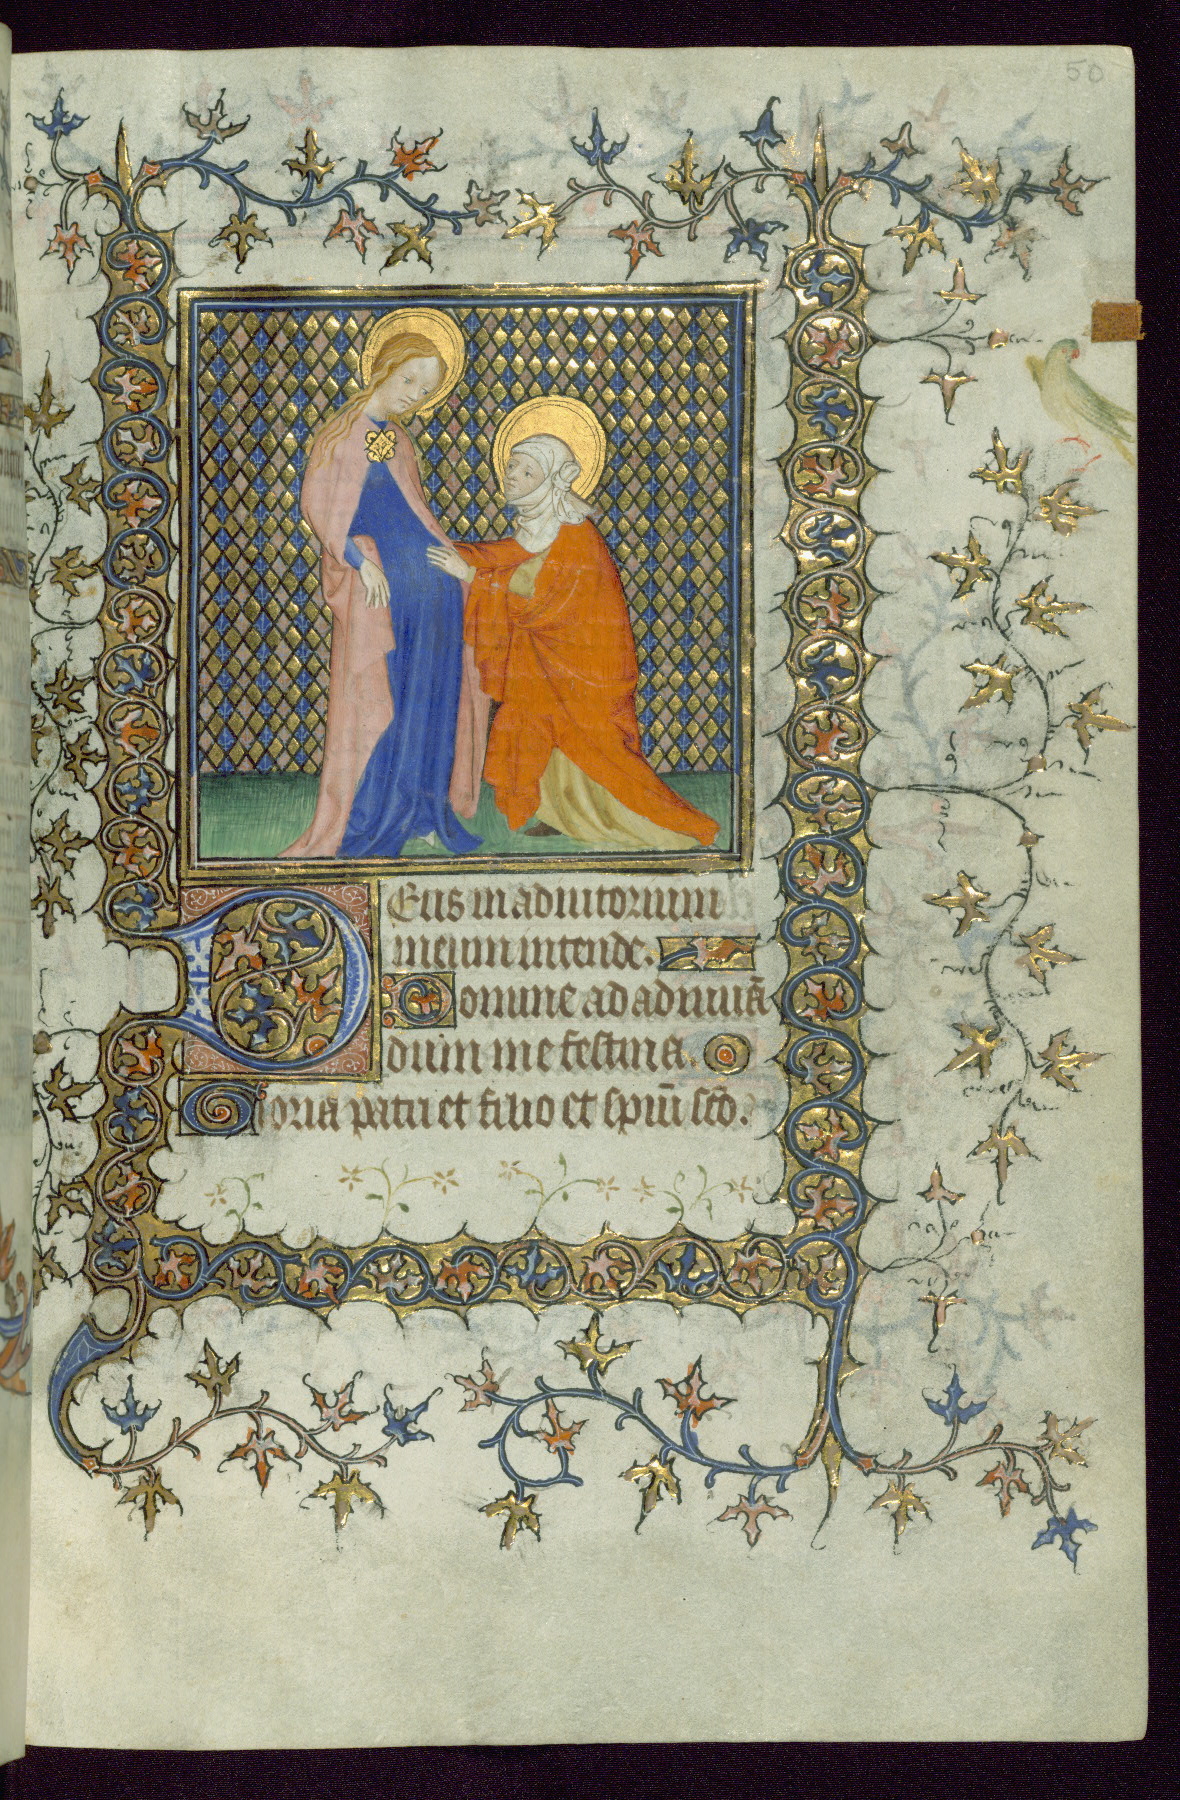 50
Deus in adiutorium
meum intende.
Domine ad adiuuā
dum me festina.
Gloria patri et filio et spiū scō.